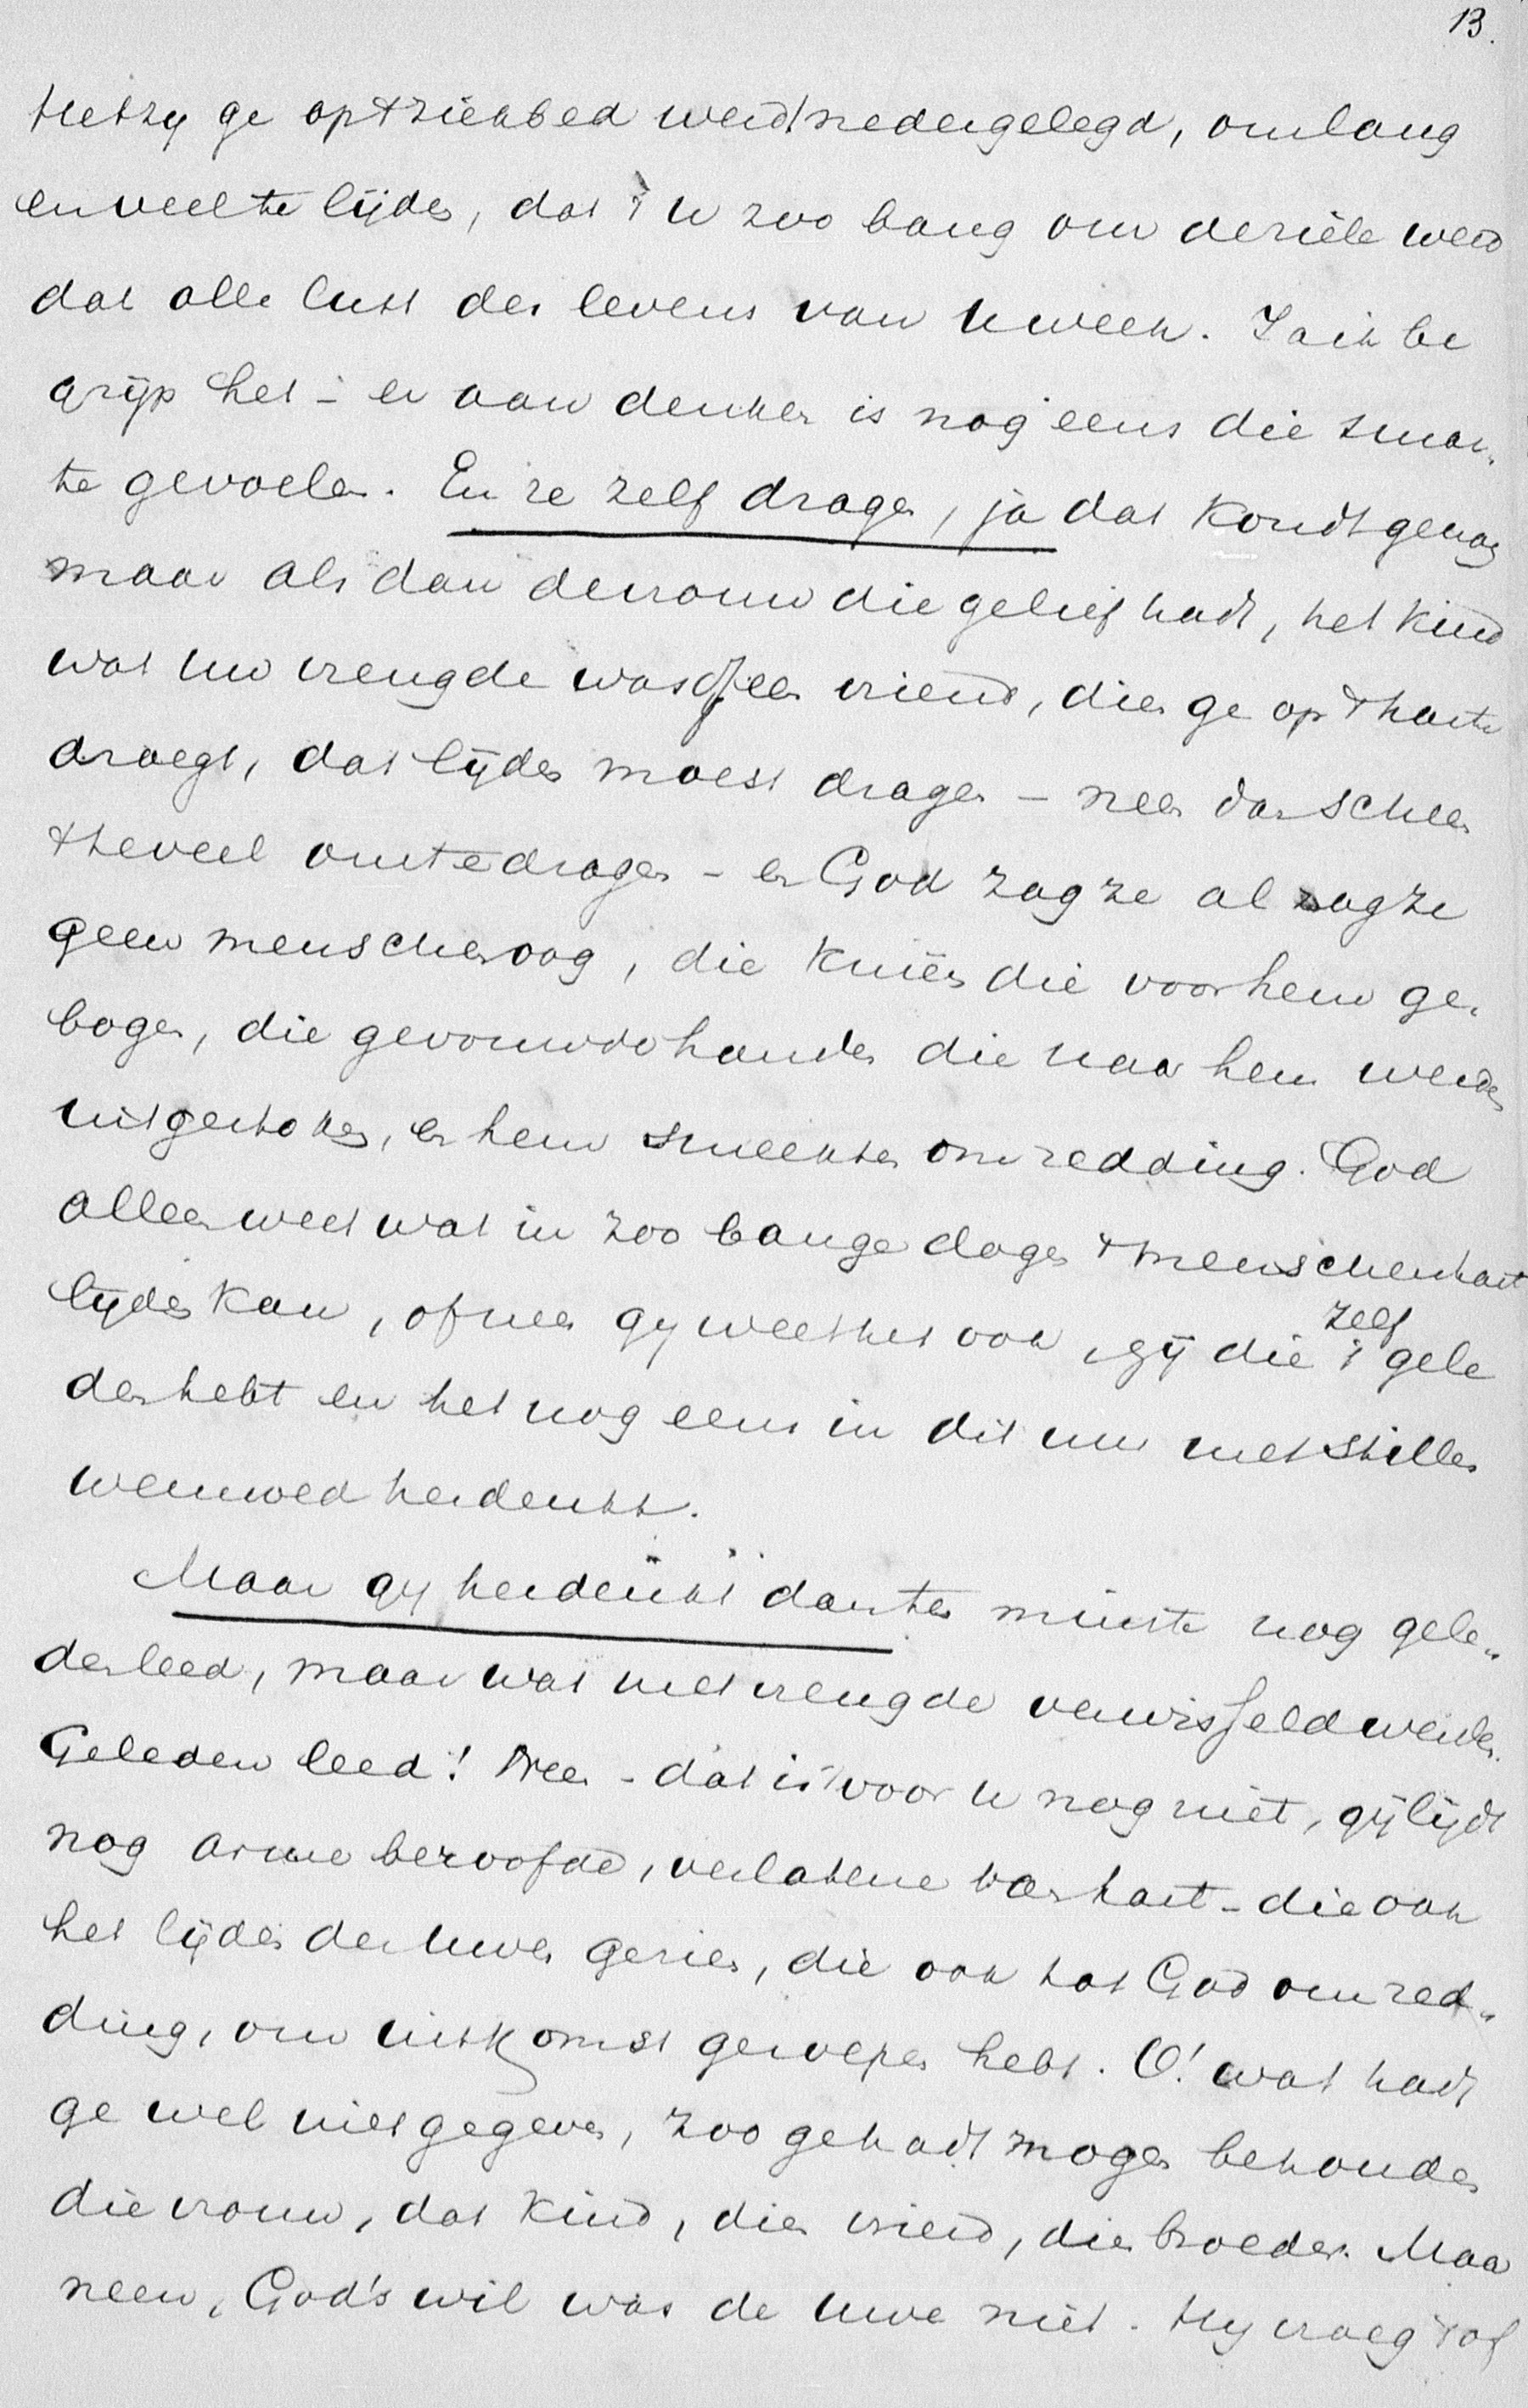 13.
Hetzy ge op 't ziekbed werdt nedergelegd, om lang
en veel te lijden, dat 't u zoo bang om de ziele werd
dat alle lust des levens van u week. Ja ik be
grijp het - er aan denken is nog eens die smar-
te gevoelen. En ze zelf dragen, ja dat kondt ge nog
maar als dan de vrouw die ge lief hadt, het kind
wat uw vreugde was of een vriend, dien ge op 't harte
droegt, dat lijden moest dragen - neen dan scheen
't te veel om te dragen - en God zag ze al zag ze
geen menschenoog, die knieën die voor hem ge-
bogen, die gevouwen handen die naar hem werden
uitgestoken, en hem smeekten om redding. God
alleen weet wat in zoo bange dagen 't menschenhart
lijden kan, of neen gy weet het ook, gij die 't zelf gele
den hebt en het nog eens in dit uur met stillen
weemoed herdenkt.
Maar gy herdenkt dan ten minste nog gele-
den leed, maar wat met vreugde verwisseld werd.
Geleden leed! Neen - dat is 't voor u nog niet, gij lijdt
nog arme beroofde, verlatene van hart - die ook
het lijden der uwen gezien, die ook tot God om red-
ding, om uitkomst geroepen hebt. O! wat hadt
ge wel niet gegeven, zoo ge hadt mogen behouden
die vrouw, dat kind, dien vriend, dien broeder. Maar
neen, God's wil was de uwe niet. Hy vroeg 't af